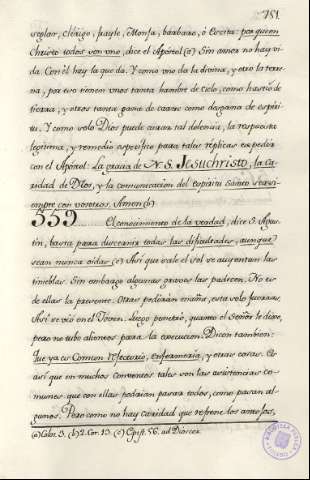 751.
seglar, clérigo, frayle, Monja, bárbaro, ó Escita: porque en
Christo todos son uno, dice el Apóstol (a) Sin amor no hay vi-
da. Con él hay la que da. Y como uno da la divina, y otro la terre-
na, por eso tienen unos tanta hambre de cielo, como hastío de
tierra, y otros tanta gana de carne como desgana de espíri-
tu. Y como solo Dios puede curar tal dolencia, la respuesta
legítima, y remedio específico para tales réplicas es pedir
con el Apóstol: La gracia de N. S. Jesuchristo, la Ca-
ridad de Dios, y la comunicacion del Espíritu Santo sea si-
empre con vosotros. Amen (b)
559 El conocimiento de la verdad, dice S. Agus-
tin, basta para discernir todas las dificultades, aunque
sean nunca oidas (c) Así que sale el sol se auyentan las
tinieblas. Sin embargo algunas gravos las padecen. No es
de ellas la presente. Otras pedirán maña, esta solo fuerzas.
Así se vió en el Joven. Luego penetró, quanto el Señor le dixo,
pero no tubo alientos para la execucion. Dicen tambien:
Que ya es Comun el refectorio, enfermeria, y otras cosas. Es
así que en muchos Conventos tales son las asistencias co-
munes que con ellas podrian pasar todos, como pasan al-
gunos. Pero como no hay caridad que refrene los antojos,
(a) Colos. 3. (b) 2. Cor. 13. (c) Epist. 56. ad Diosco.
BIBLIOTECA